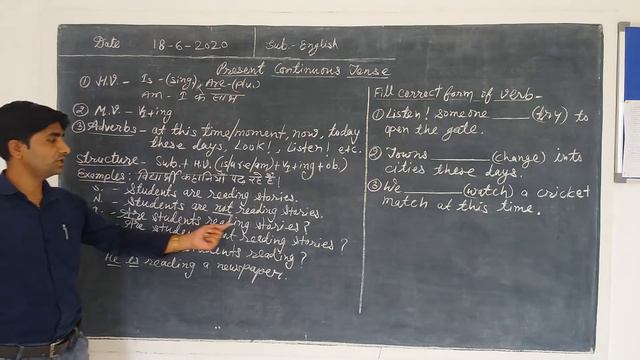 Date 18-6-2020 Sub.- English
Present Continuous Tense
① H.V.- Is-(sing), Are-(plu.)
Am - I के साथ
② M.V. - V₁+ing
③ Adverbs - at this time/moment, now, today
these days, Look!, Listen! etc.
Structure - Sub.+ H.V. (is/are/am)+V₁+ing+ob.
Examples: विद्यार्थी कहानियां पढ़ रहे हैं।
S. - Students are reading stories.
N. - Students are not reading stories.
?. - Are students reading stories?
- Are students not reading stories?
students reading?
He is reading a newspaper.
Fill correct form of verb-
① Listen! someone ______ (try) to
open the gate.
② Towns ______ (change) into
cities these days.
③ We ______ (watch) a cricket
match at this time.